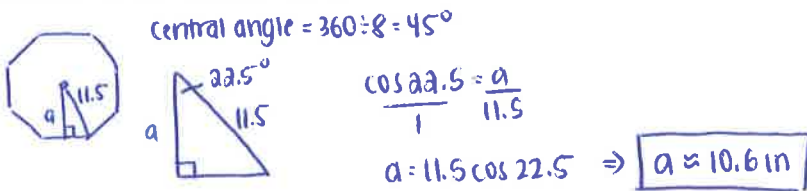 central angle = 360÷8 = 45°
11.5
a
22.5°
11.5
a
cos 22.5 = a
1 11.5
a = 11.5 cos 22.5 ⇒ a ≈ 10.6 in